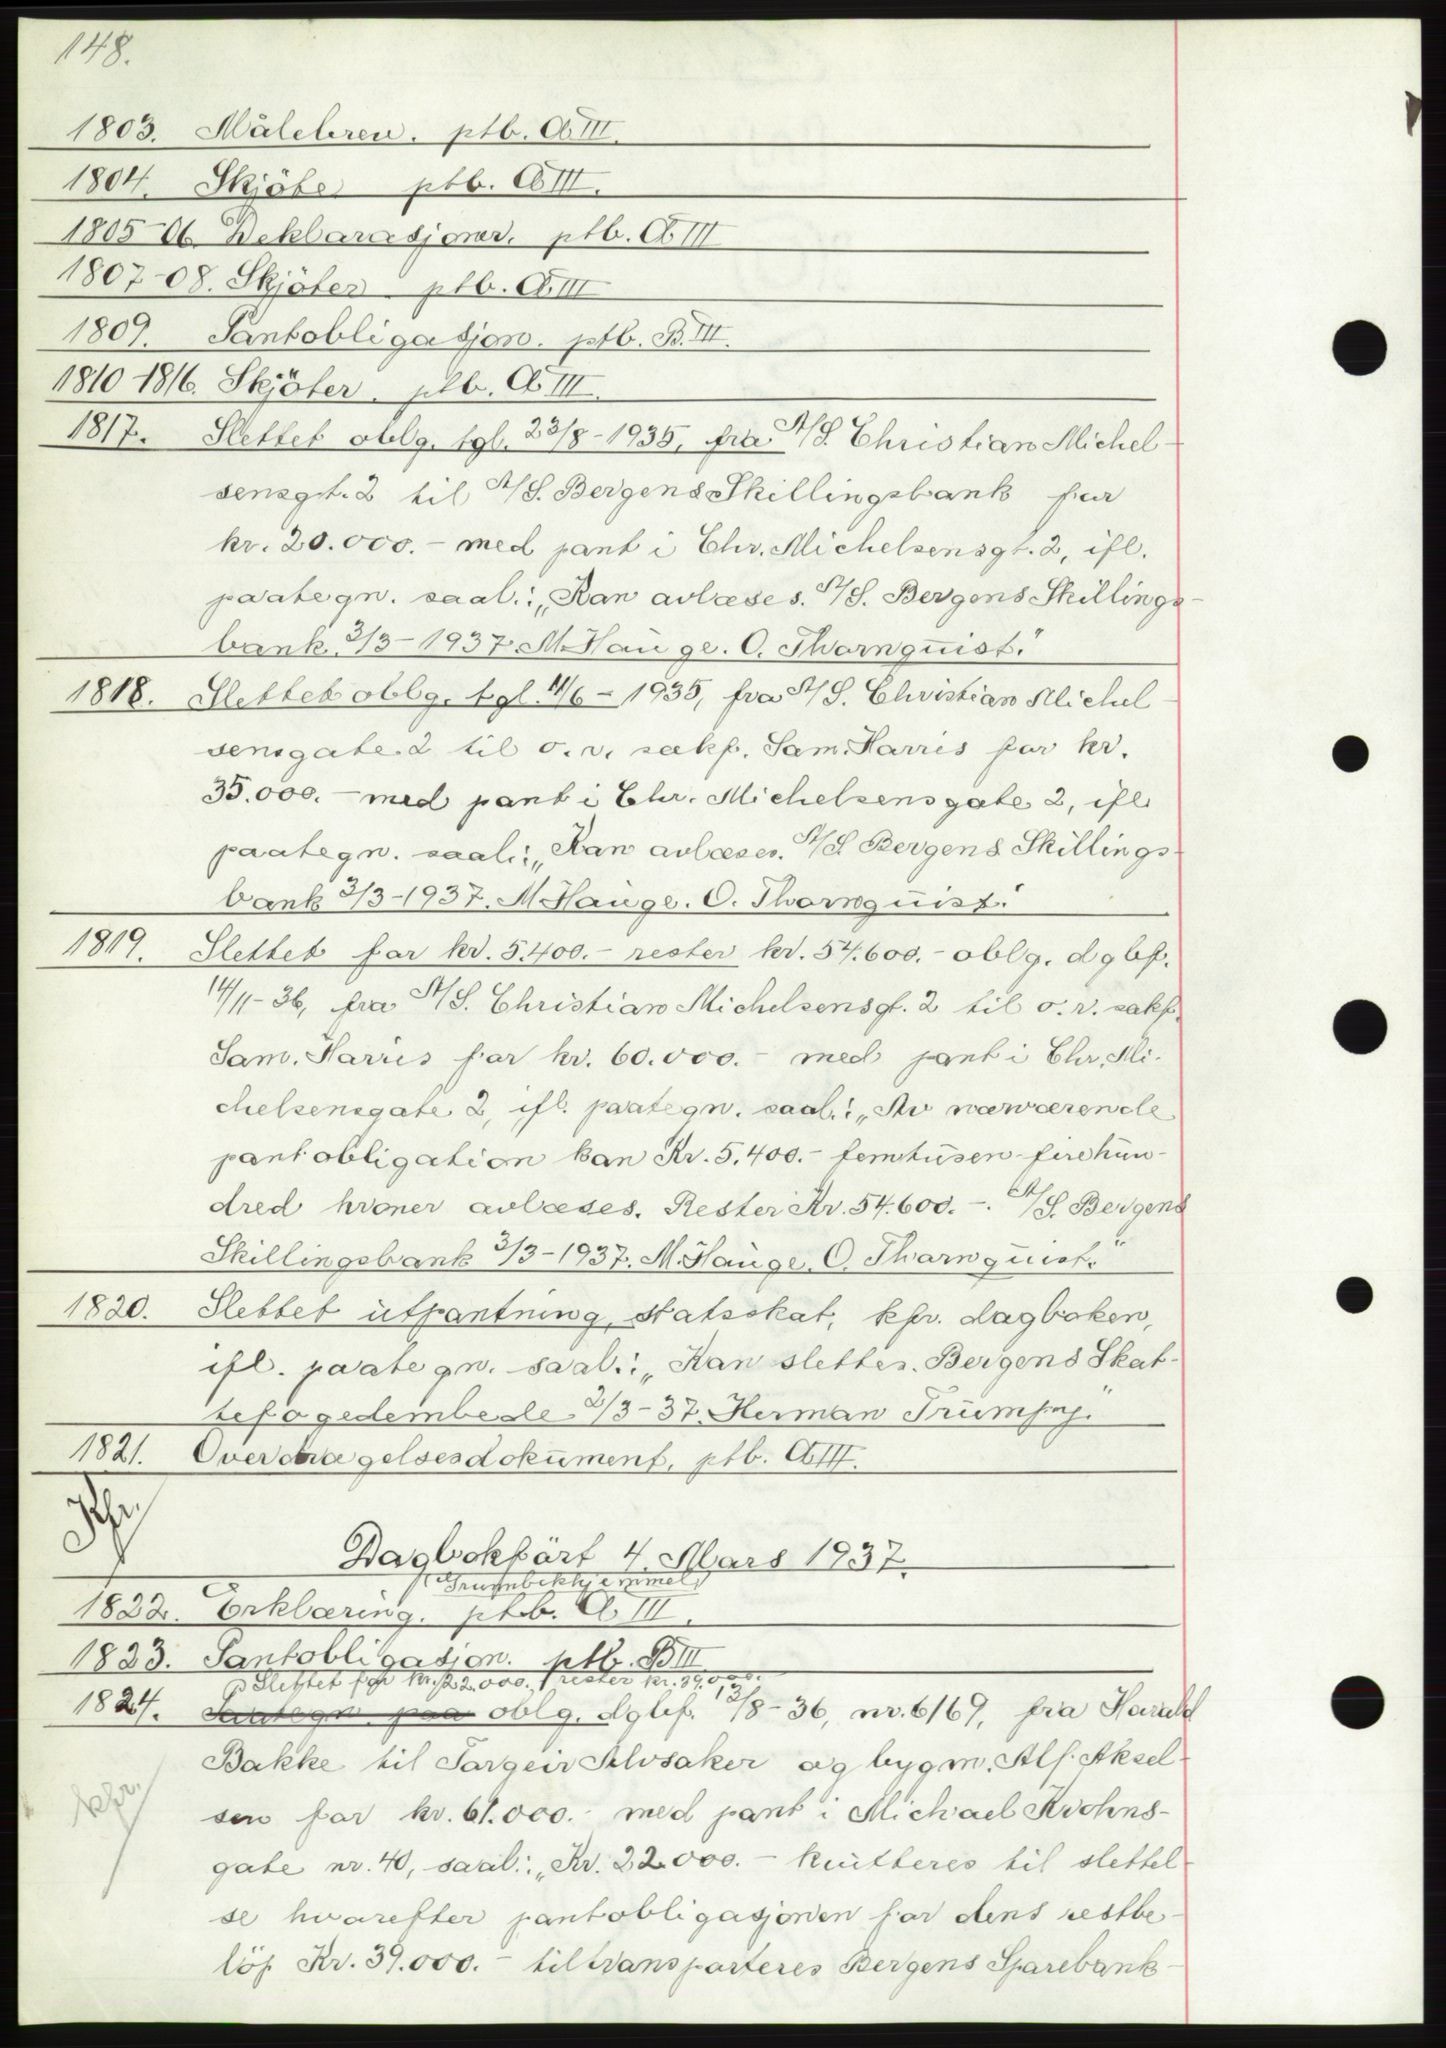 148.
1803. Målebrev. ptb. A III.
1804. Skjöte ptb. A III.
1805-06. Deklarasjoner. ptb. A III
1807-08. Skjöter ptb. A III
1809. Pantobligasjon. ptb. B. III.
1810-1816. Skjöter. ptb. A III.
1817. Slettet oblg. tgl. 23/8-1935, fra A/S. Christian Michel-
sensgt. 2 til A/S. Bergens Skillingsbank for
kr. 20.000.- med pant i Chr. Michelsensgt. 2, ifl.
paategn. saal.: „Kan avlæses. A/S. Bergens Skillings-
bank 3/3-1937. M. Hauge. O. Thornquist."
1818. Slettet oblg. tgl. 11/6-1935, fra A/S. Christian Michel-
sensgate 2 til o. r. sakf. Sam. Harris for kr.
35.000.- med pant i Chr. Michelsensgate 2, ifl.
paategn. saal.: „Kan avlæses. A/S Bergens Skillings-
bank 3/3-1937. M. Hauge. O. Thornquist."
1819. Slettet for kr. 5.400.- rester kr. 54.600.- oblg. dgbf.
14/11-36, fra A/S. Christian Michelsensgt. 2 til o. r. sakf.
Sam. Harris for kr. 60.000.- med pant i Chr. Mi-
chelsensgate 2, ifl. paategn. saal.: „Av nærværende
pantobligation kan Kr. 5.400.- femtusen-firehun-
dred kroner avlæses. Rester Kr. 54.600.-. A/S. Bergens
Skillingsbank 3/3-1937. M. Hauge. O. Thornquist."
1820. Slettet utpantning, statsskat, kfr. dagboken,
ifl. paategn. saal.: „Kan slettes. Bergens Skat-
tefogedembede 3/3-37. Herman Trumpy."
1821. Overdragelsesdokument, ptb. A III.
Dagbokfört 4. Mars 1937.
(Grunnbokhjemmel)
1822. Erklæring. ptb. A III.
1823. Pantobligasjon. ptb. B III
Slettet for kr. 22.000.- (rester kr. 39.000.-
1824. Paategn. paa oblg. dgbf. 13/8-36, nr. 6169, fra Harald
Bakke til Torgeir Alvsaker og bygm. Alf. Aksel-
sen for kr. 61.000.- med pant i Michael Krohns-
gate nr. 40, saal.: „Kr. 22.000.- kvitteres til slettel-
se hvorefter pantobligasjonen for dens restbe-
löp Kr. 39.000.- tiltransporteres Bergens Sparebank-
kfr.